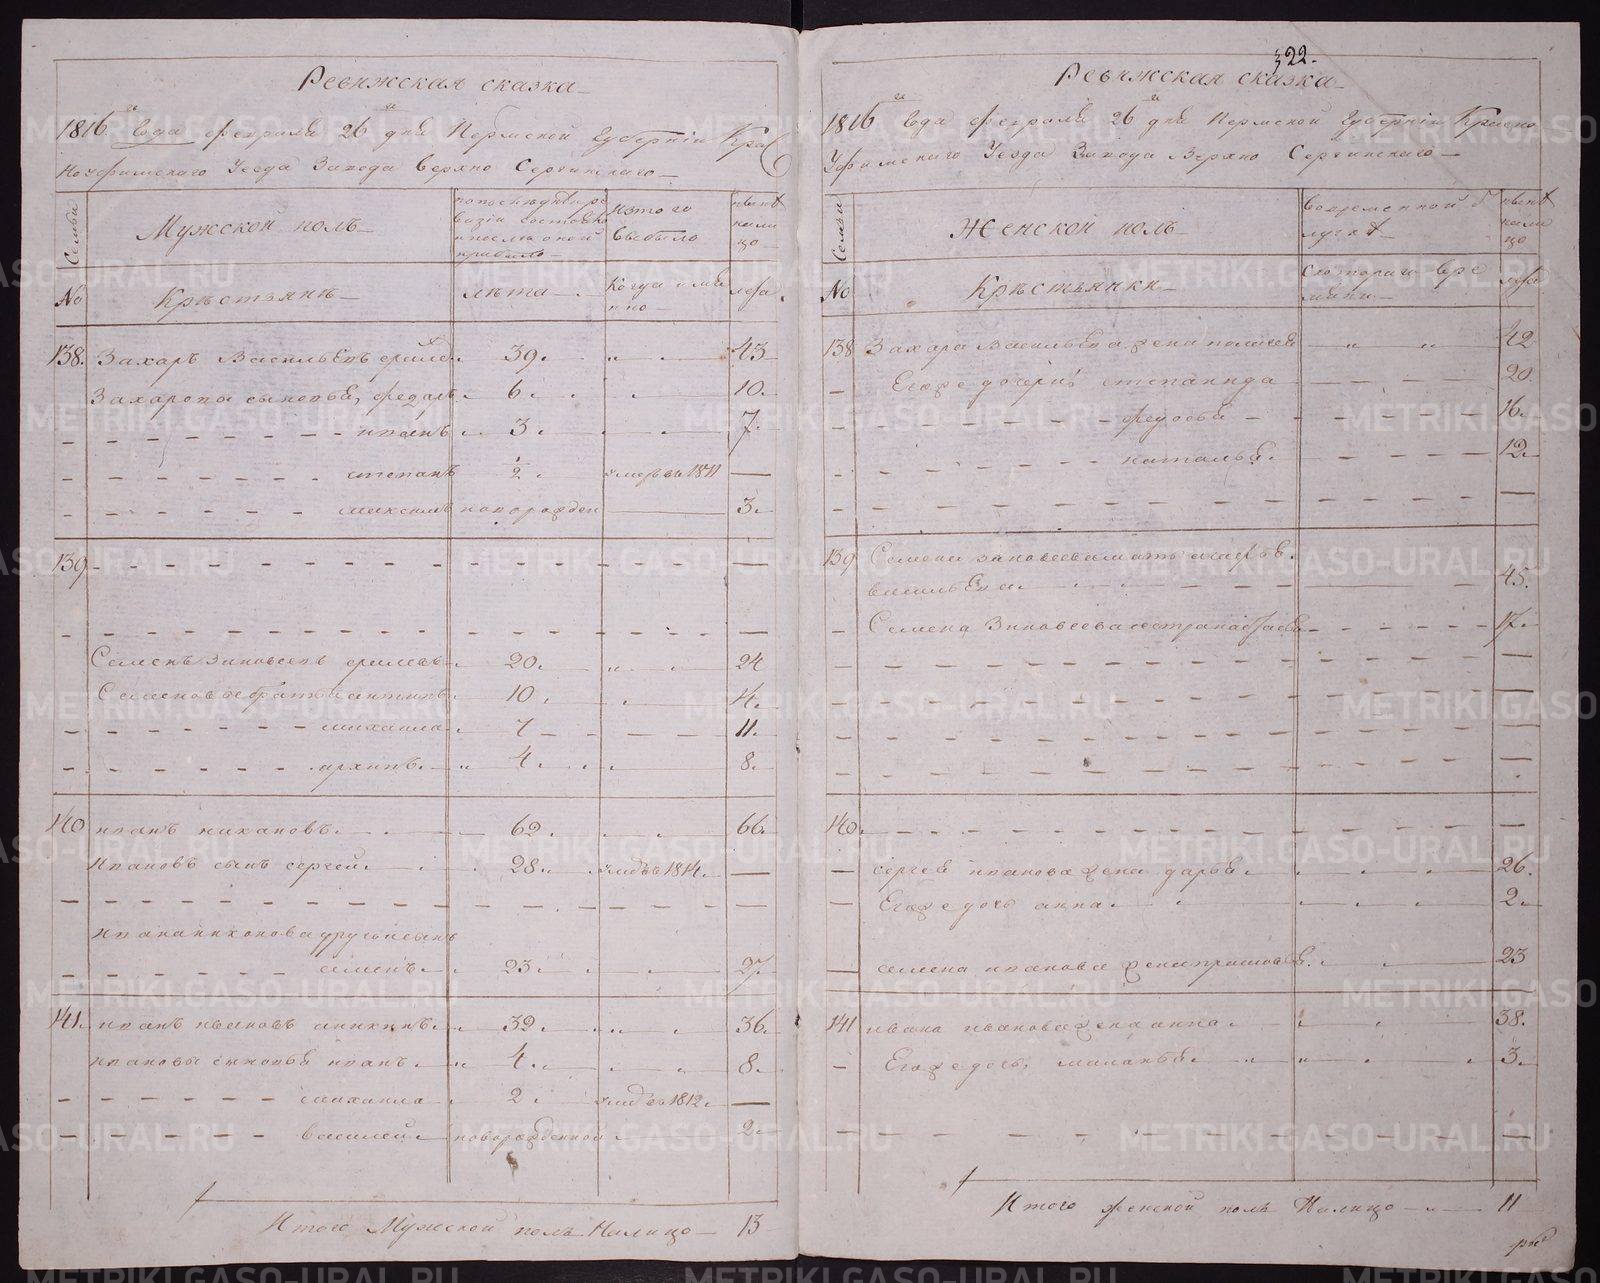 Ревижская сказка
1816го года февраля 26го дня Пермской Губернiи Крас
ноуфимскаго Уезда Завода Верхно Сергинскаго
Семьи
Мужской полъ
Изтого выбыло
ныне налицо
№
Крѣстьянѣ
лѣта
Когда имянно
лета
138. Захаръ Васильевъ 39. 43
Захаровы сыновья, федаръ 6 10.
иванъ 3. 7.
степанъ ½ умеръ въ 1811
максимъ новорожден 3.
139
Семенъ Зиновеевъ 20. 24
Семеновы братья антипъ 10 14.
михаила 7 11.
архипъ 4 8.
140 иванъ никановъ 62. 66.
Ивановъ сынъ сергей 28. въ 1814.
Ивана никонова другой сынъ
семенъ 23 27
141. иванъ ивановъ аникинъ 32. 36.
ивановы сыновья иванъ 4. 8.
михаила 2 въ 1812.
василей новорожденной 2.
Итого Мужской полъ Налицо 13
322.
Ревижская сказка
1816го года февраля 26го дня Пермской Губернiи Красно
Уфимскаго Уезда Завода Верхно Сергинскаго
Семьи
Женской полъ
Вовременной отлучкѣ
ныне налицо
№
Крѣстьянки
Скоторого времяни
лета
138 Захара Васильева жена 42
Егоже дочери степанида 20
федосья 16.
наталья 12.
139 Семена зиновеева мать
васильева 45.
Семена Зиновеева сестра 17.
140.
сергея иванова жена дарья 26.
Егоже дочь анна 2.
семена иванова жена 23
141 ивана иванова жена анна 38.
Егоже дочь, маланья 3.
Итого женской полъ Налицо 11
METRIKI.GASO-URAL.RU